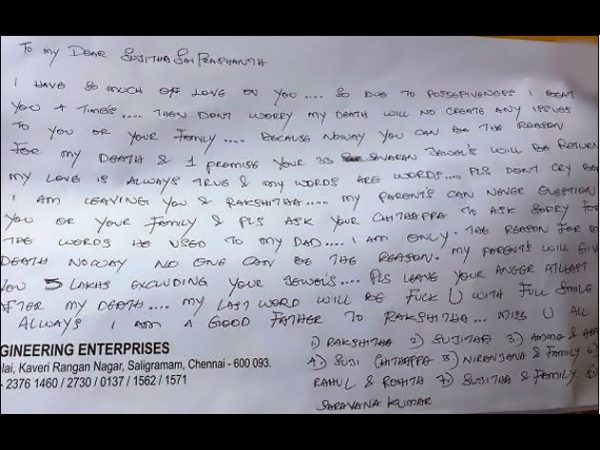 To my Dear Sujitha Sai Prashanth
I have so much off love on you.... so due to possesiveness I beat
you 4 times.... Then dont worry my death will no create any issues
to you or your family.... Because noway you can be the reason
for my death & 1 promise your 33 Savaran Jewel's will be return
my love is always true & my words are words.... Pls dont cry
I am leaving you & Rakshitha..... my parent's can never question
you or your family & pls ask your Chithappa to ask sorry for
the words he used to my Dad.... I am only the reason for my
death noway no one can be the reason. my parent's will give
you 5 lakhs excluding your jewel's.... Pls leave your anger atleast
after my death.... my last word will be fuck U with full smile
Always I am a good father to Rakshitha... miss U all
1) Rakshitha 2) Sujitha 3) Amma &
4) Suji Chithappa 5) Niranjana & family 6)
Rahul & Rohith 7) Sujitha & family 8)
Saravana Kumar
GINEERING ENTERPRISES
lai, Kaveri Rangan Nagar, Saligramam, Chennai - 600 093.
- 2376 1460 / 2730 / 0137 / 1562 / 1571